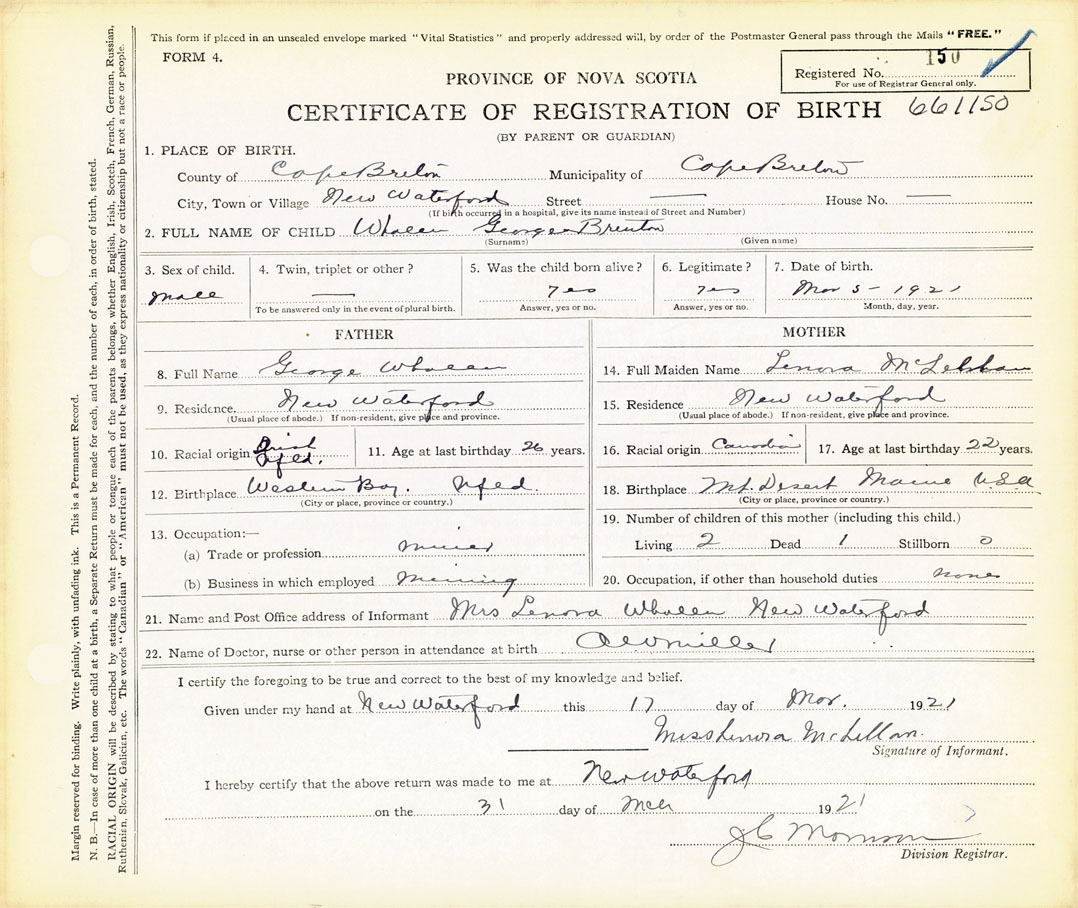 This form if placed in an unsealed envelope marked "Vital Statistics" and properly addressed will, by order of the Postmaster General pass through the Mails "FREE."
FORM 4.
150
Registered No.
For use of Registrar General only.
PROVINCE OF NOVA SCOTIA
CERTIFICATE OF REGISTRATION OF BIRTH 661150
(BY PARENT OR GUARDIAN)
1. PLACE OF BIRTH.
County of Cape Breton Municipality of Cape Breton
City, Town or Village New Waterford Street — House No. —
(If birth occurred in a hospital, give its name instead of Street and Number)
2. FULL NAME OF CHILD Whalen George Brenton
(Surname) (Given name)
3. Sex of child. 4. Twin, triplet or other? 5. Was the child born alive? 6. Legitimate? 7. Date of birth.
male — yes yes Mar 5 - 1921
To be answered only in the event of plural birth. Answer, yes or no. Answer, yes or no. Month, day, year.
FATHER
8. Full Name George Whalen
9. Residence New Waterford
(Usual place of abode.) If non-resident, give place and province.
10. Racial origin Irish Nfld. 11. Age at last birthday 26 years.
12. Birthplace Western Bay. Nfld.
(City or place, province or country.)
13. Occupation:—
(a) Trade or profession miner
(b) Business in which employed Mining
MOTHER
14. Full Maiden Name Lenora
15. Residence New Waterford
(Usual place of abode.) If non-resident, give place and province.
16. Racial origin Canadian 17. Age at last birthday 22 years.
18. Birthplace Mt. Desert Maine U.S.A.
(City or place, province or country.)
19. Number of children of this mother (including this child.)
Living 2 Dead 1 Stillborn 0
20. Occupation, if other than household duties none
21. Name and Post Office address of Informant Mrs Lenora Whalen New Waterford
22. Name of Doctor, nurse or other person in attendance at birth Miller
I certify the foregoing to be true and correct to the best of my knowledge and belief.
Given under my hand at New Waterford this 17 day of Mar. 1921
Miss Lenora McLellan.
Signature of Informant.
I hereby certify that the above return was made to me at New Waterford
on the 31 day of Mch 1921
J C Morrison
Division Registrar.
Margin reserved for binding. Write plainly, with unfading ink. This is a Permanent Record.
N. B.—In case of more than one child at a birth, a Separate Return must be made for each, and the number of each, in order of birth, stated.
RACIAL ORIGIN will be described by stating to what people or tongue each of the parents belongs, whether English, Irish, Scotch, French, German, Russian,
Ruthenian, Slovak, Galician, etc. The words "Canadian" or "American" must not be used, as they express nationality or citizenship but not a race or people.